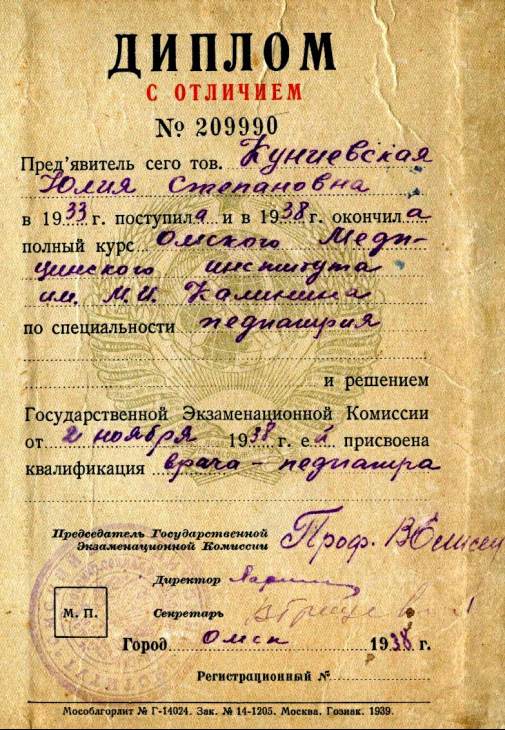 ДИПЛОМ
С ОТЛИЧИЕМ
№ 209990
Пред'явитель сего тов. Куниевская
Юлия Степановна
в 1933 г. поступила и в 1938 г. окончила
полный курс Омского Меди-
цинского института
им. М.И. Калинина
по специальности педиатрия
и решением
Государственной Экзаменационной Комиссии
от 2 ноября 1938 г. ей присвоена
квалификация врача-педиатра
Председатель Государственной
Экзаменационной Комиссии Проф.
Директор
М. П.
Секретарь
Город Омск 1938 г.
Регистрационный №
Мособлгорлит № Г-14024. Зак. № 14-1205. Москва. Гознак. 1939.